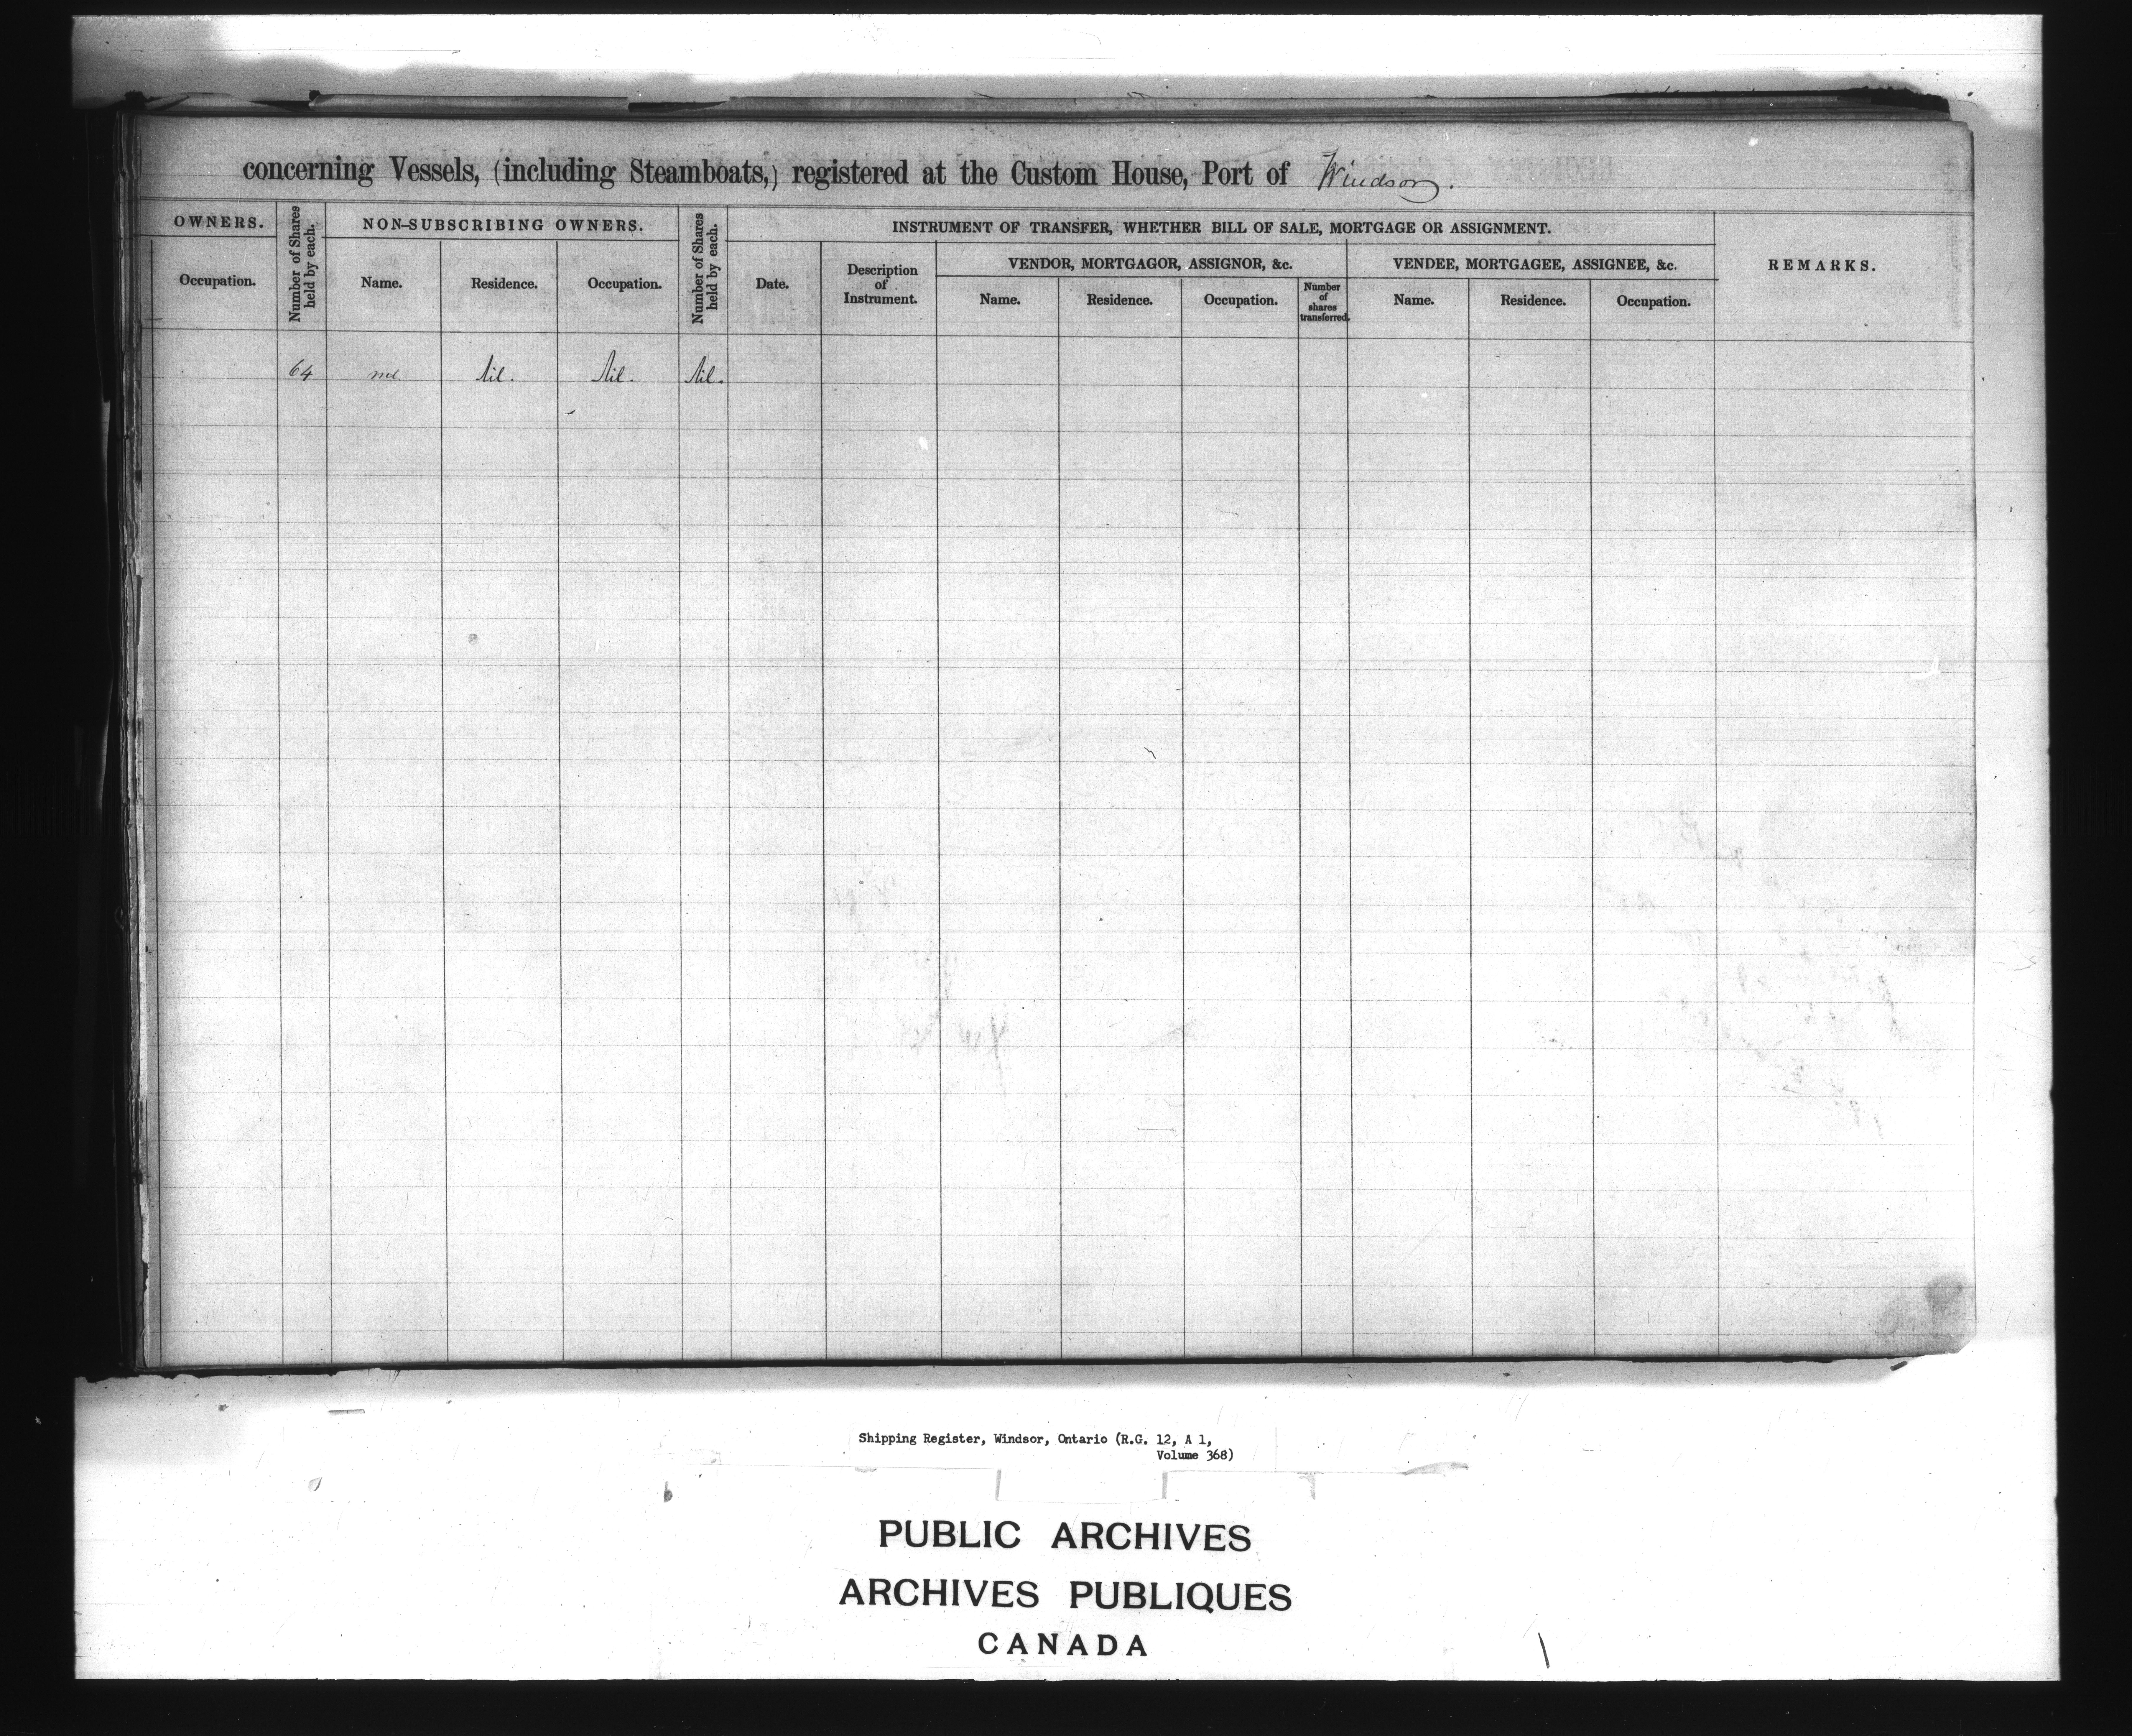 concerning Vessels, (including Steamboats,) registered at the Custom House, Port of Windsor.
OWNERS.
Number of Shares held by each.
NON-SUBSCRIBING OWNERS.
Number of Shares held by each.
INSTRUMENT OF TRANSFER, WHETHER BILL OF SALE, MORTGAGE OR ASSIGNMENT.
REMARKS.
VENDOR, MORTGAGOR, ASSIGNOR, &c.
VENDEE, MORTGAGEE, ASSIGNEE, &c.
Occupation.
Name.
Residence.
Occupation.
Date.
Description
of
Instrument.
Name.
Residence.
Occupation.
Number
of
shares
transferred.
Name.
Residence.
Occupation.
64 nil Nil. Nil. Nil.
Shipping Register, Windsor, Ontario (R.G. 12, A 1,
Volume 368)
PUBLIC ARCHIVES
ARCHIVES PUBLIQUES
CANADA